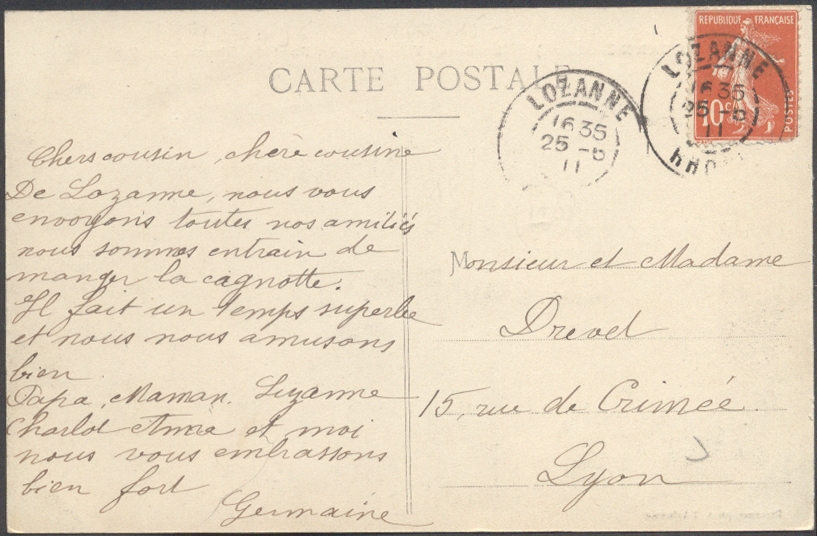 CARTE POSTALE
REPUBLIQUE FRANÇAISE
10c
POSTES
LOZANNE
16 35
25 -5
11
RHONE
LOZANNE
16 35
25 -5
11
Chers cousin, chère cousine
De Lozanne, nous vous
envoyons toutes nos amitiés
nous sommes entrain de
manger la cagnotte.
Il fait un temps superbe
et nous nous amusons
bien
Papa, Maman, Suzanne
Charlot Anna et moi
nous vous embrassons
bien fort
Germaine
Monsieur et Madame
Drevet
15, rue de Crimée
Lyon